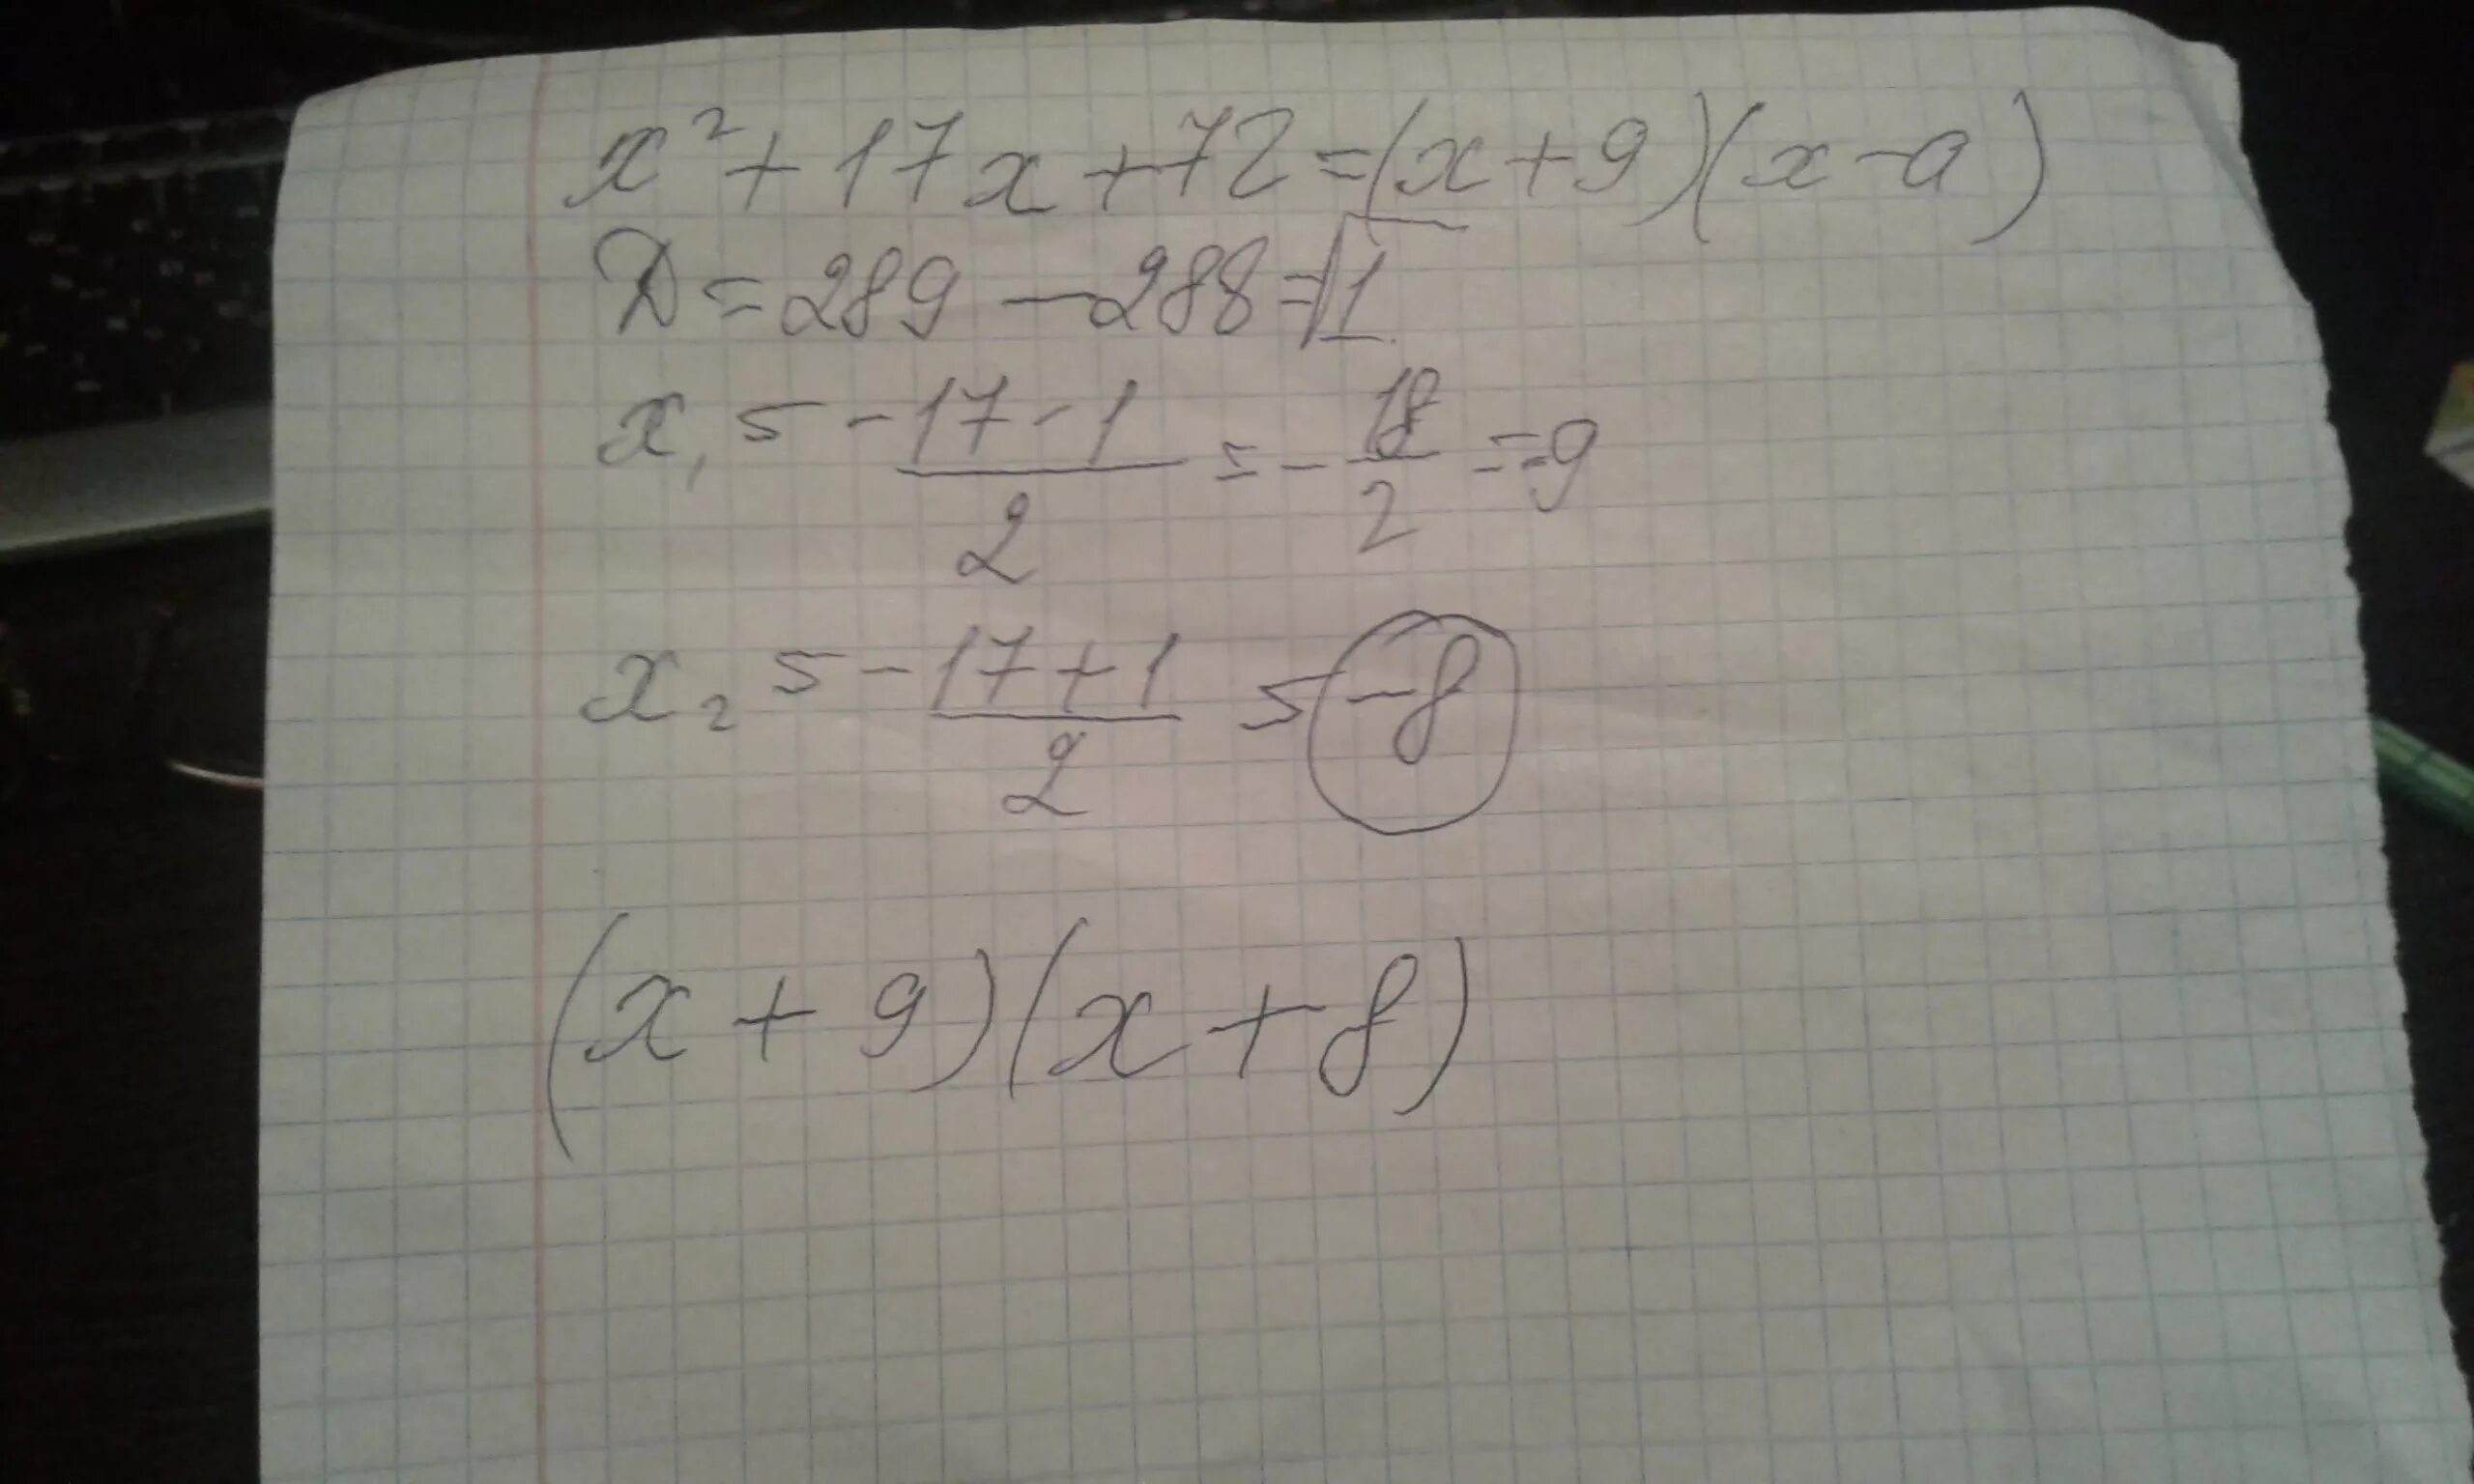 x² + 17x + 72 = (x + 9)(x - a)
D = 289 - 288 = √1
x₁ = -17 - 1 / 2 = - 18 / 2 = -9
x₂ = -17 + 1 / 2 = -8
(x + 9)(x + 8)